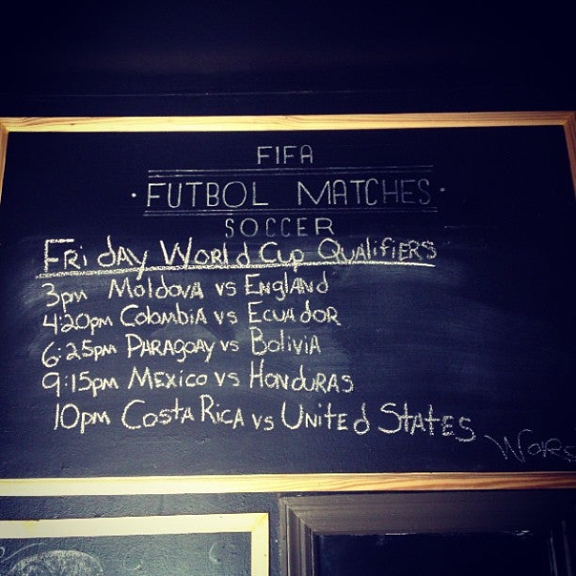 FIFA
· FUTBOL MATCHES ·
SOCCER
FRiday WorLd Cup QuaLifiERS
3pm Moldova vs England
4:20pm Colombia vs Ecuador
6:25pm PARAGOAY vs Bolivia
9:15pm Mexico vs Honduras
10pm Costa Rica vs United States